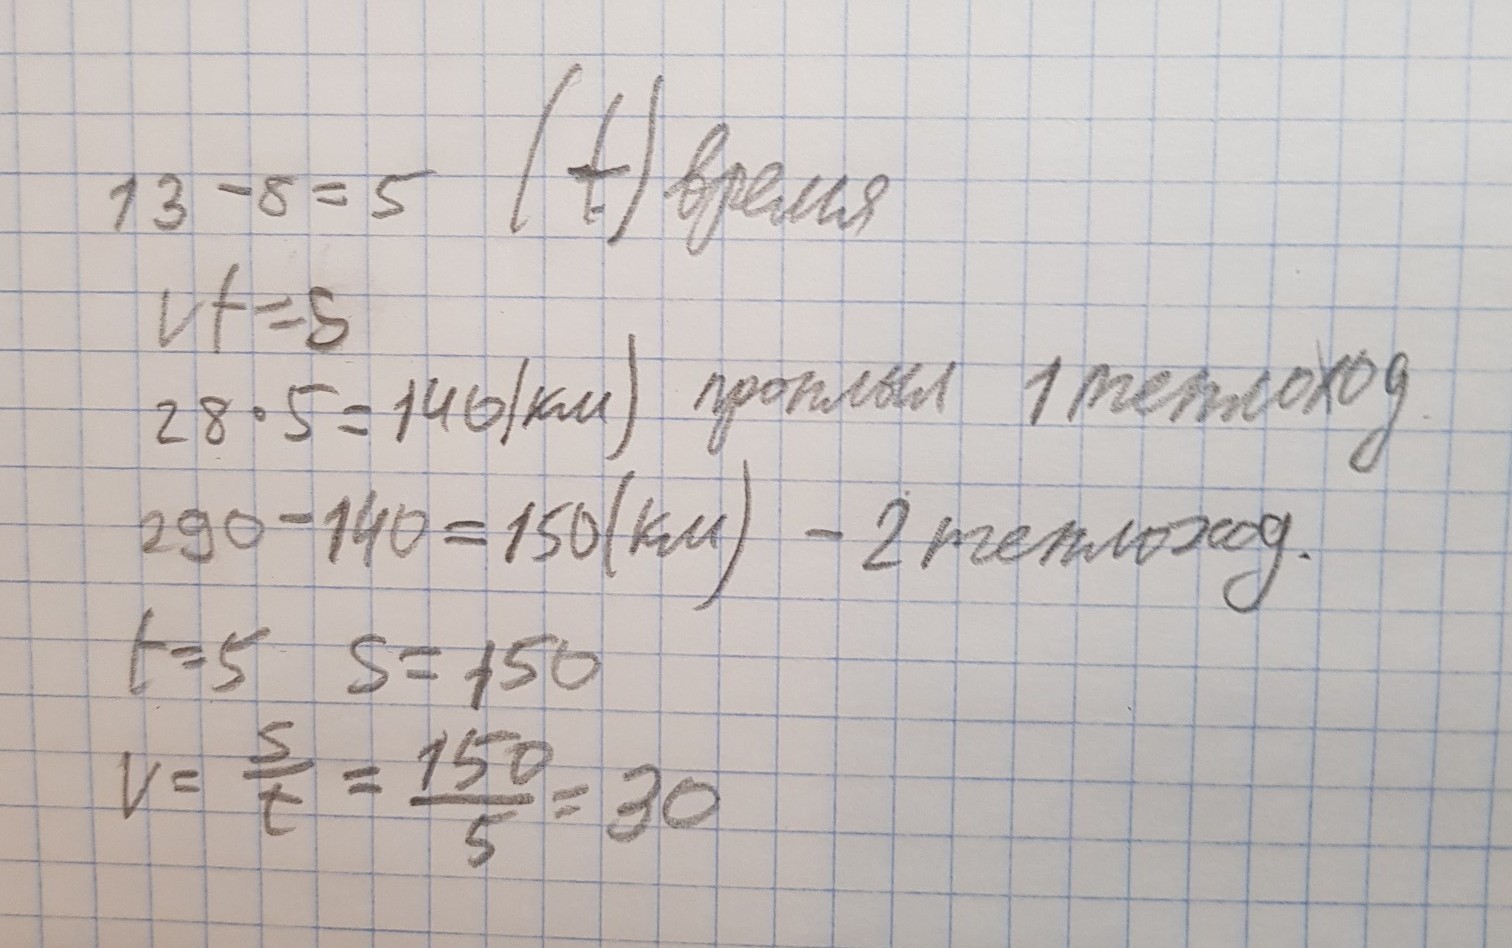 13 - 8 = 5 (t) время
vt = S
28 · 5 = 140 (км) проплыл 1 теплоход
290 - 140 = 150 (км) - 2 теплоход.
t = 5 S = 150
v = S/t = 150/5 = 30